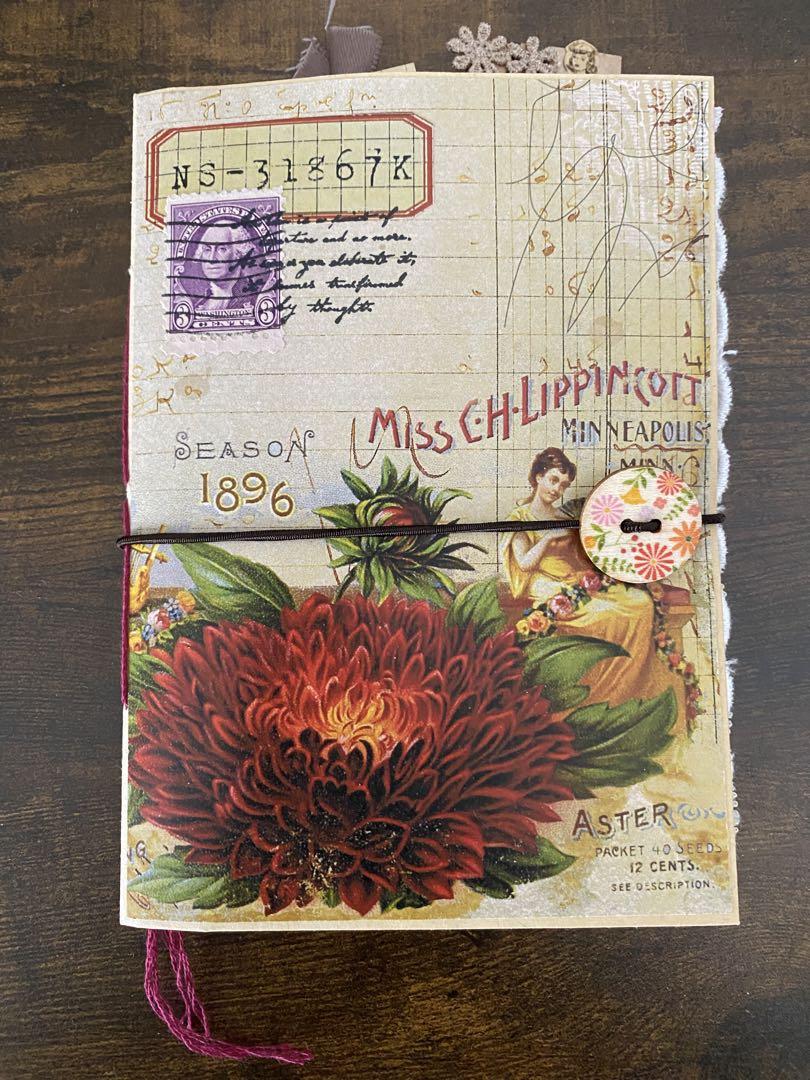 NS-31867K
UNITED STATES POSTAGE
is a point of
and no more.
As soon as you elaborate it,
it becomes transformed
by thought.
3 WASHINGTON 3
CENTS
MISS C·H·LIPPINCOTT
MINNEAPOLIS,
MINN.
SEASON
1896
ASTER
PACKET 40 SEEDS
12 CENTS.
SEE DESCRIPTION.